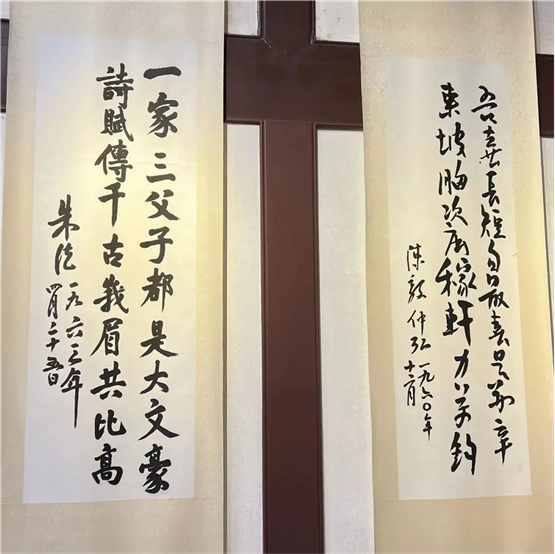 吾喜長短句最喜是蘇辛
東坡胸次廣稼軒力萬鈞
陳毅仲弘一九六〇年
十二月
一家三父子都是大文豪
詩賦傳千古峩眉共比高
朱德一九六三年
四月二十五日